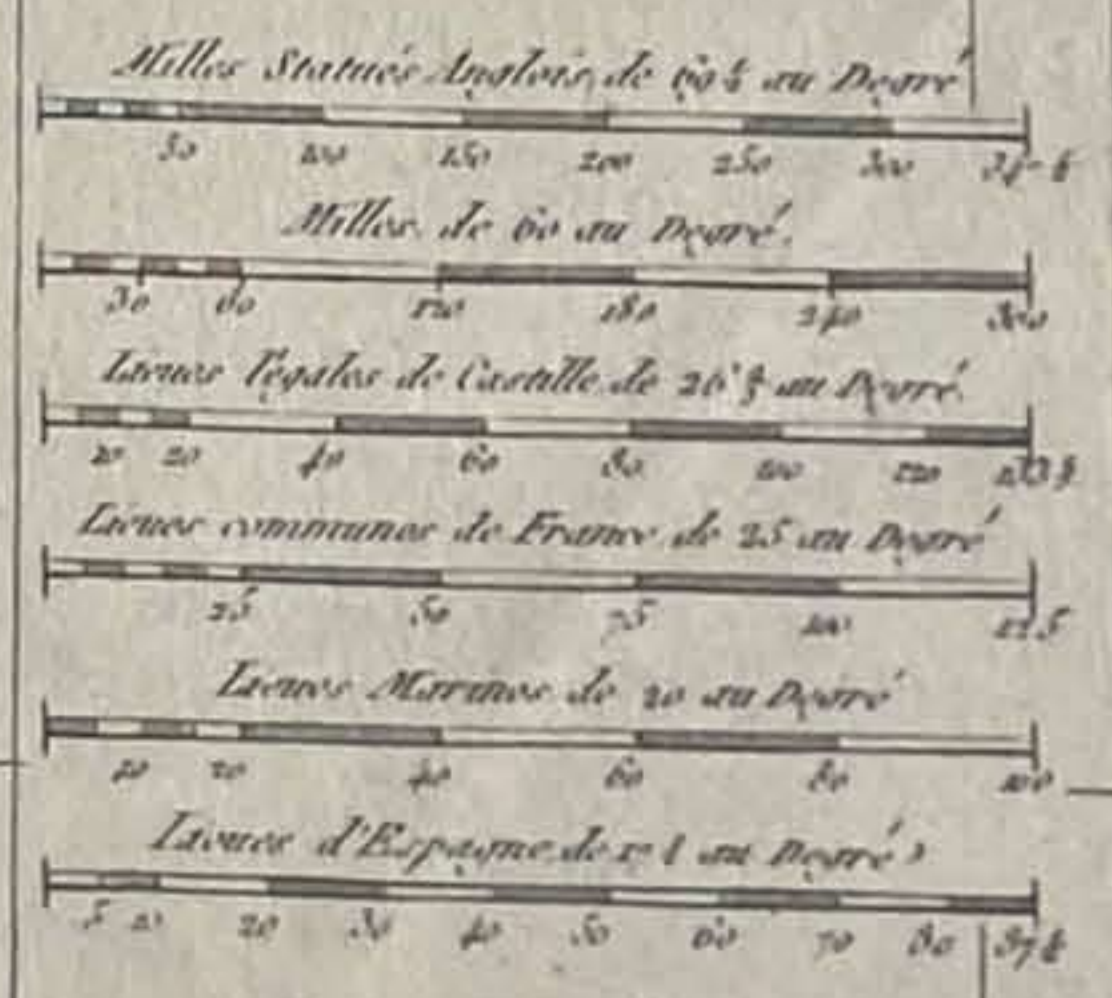 Milles Statués Anglois, de 69½ au Degré
50 100 150 200 250 300 347½
Milles de 60 au Degré.
30 60 120 180 240 300
Lieues légales de Castille, de 26⅔ au Degré.
10 20 40 60 80 100 120 133⅓
Lieues communes de France de 25 au Degré
25 50 75 100 125
Lieues Marines de 20 au Degré
10 20 40 60 80 100
Lieues d'Espagne, de 17½ au Degré
5 10 20 30 40 50 60 70 80 87½